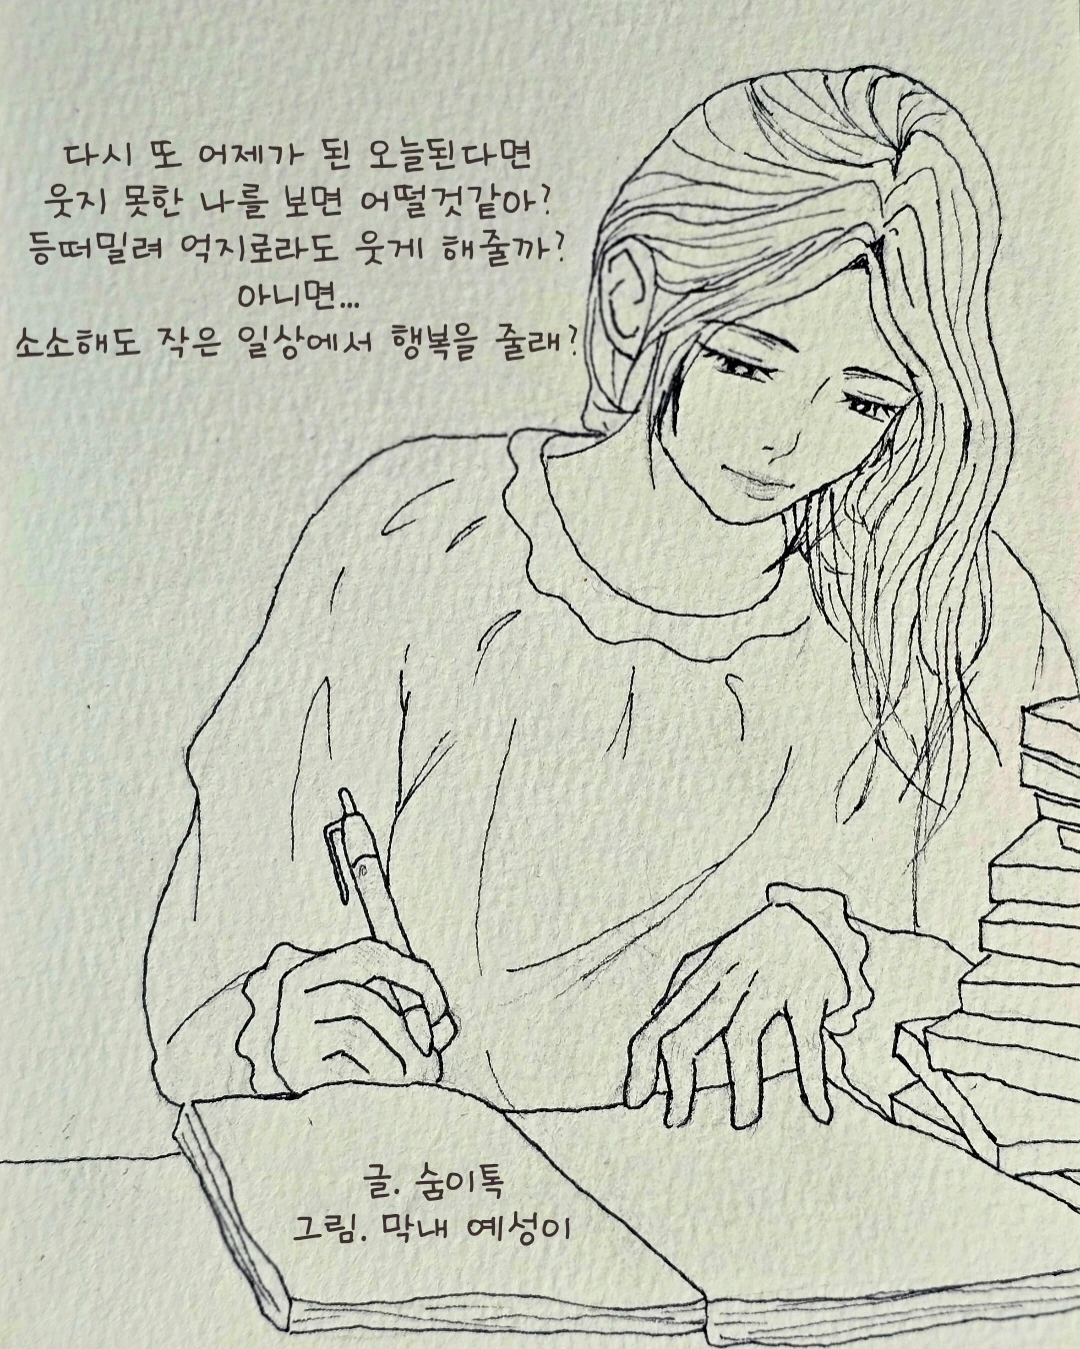 다시 또 어제가 된 오늘된다면
웃지 못한 나를 보면 어떨것같아?
등떠밀려 억지로라도 웃게 해줄까?
아니면...
소소해도 작은 일상에서 행복을 줄래?
글. 숨이톡
그림. 막내 예성이